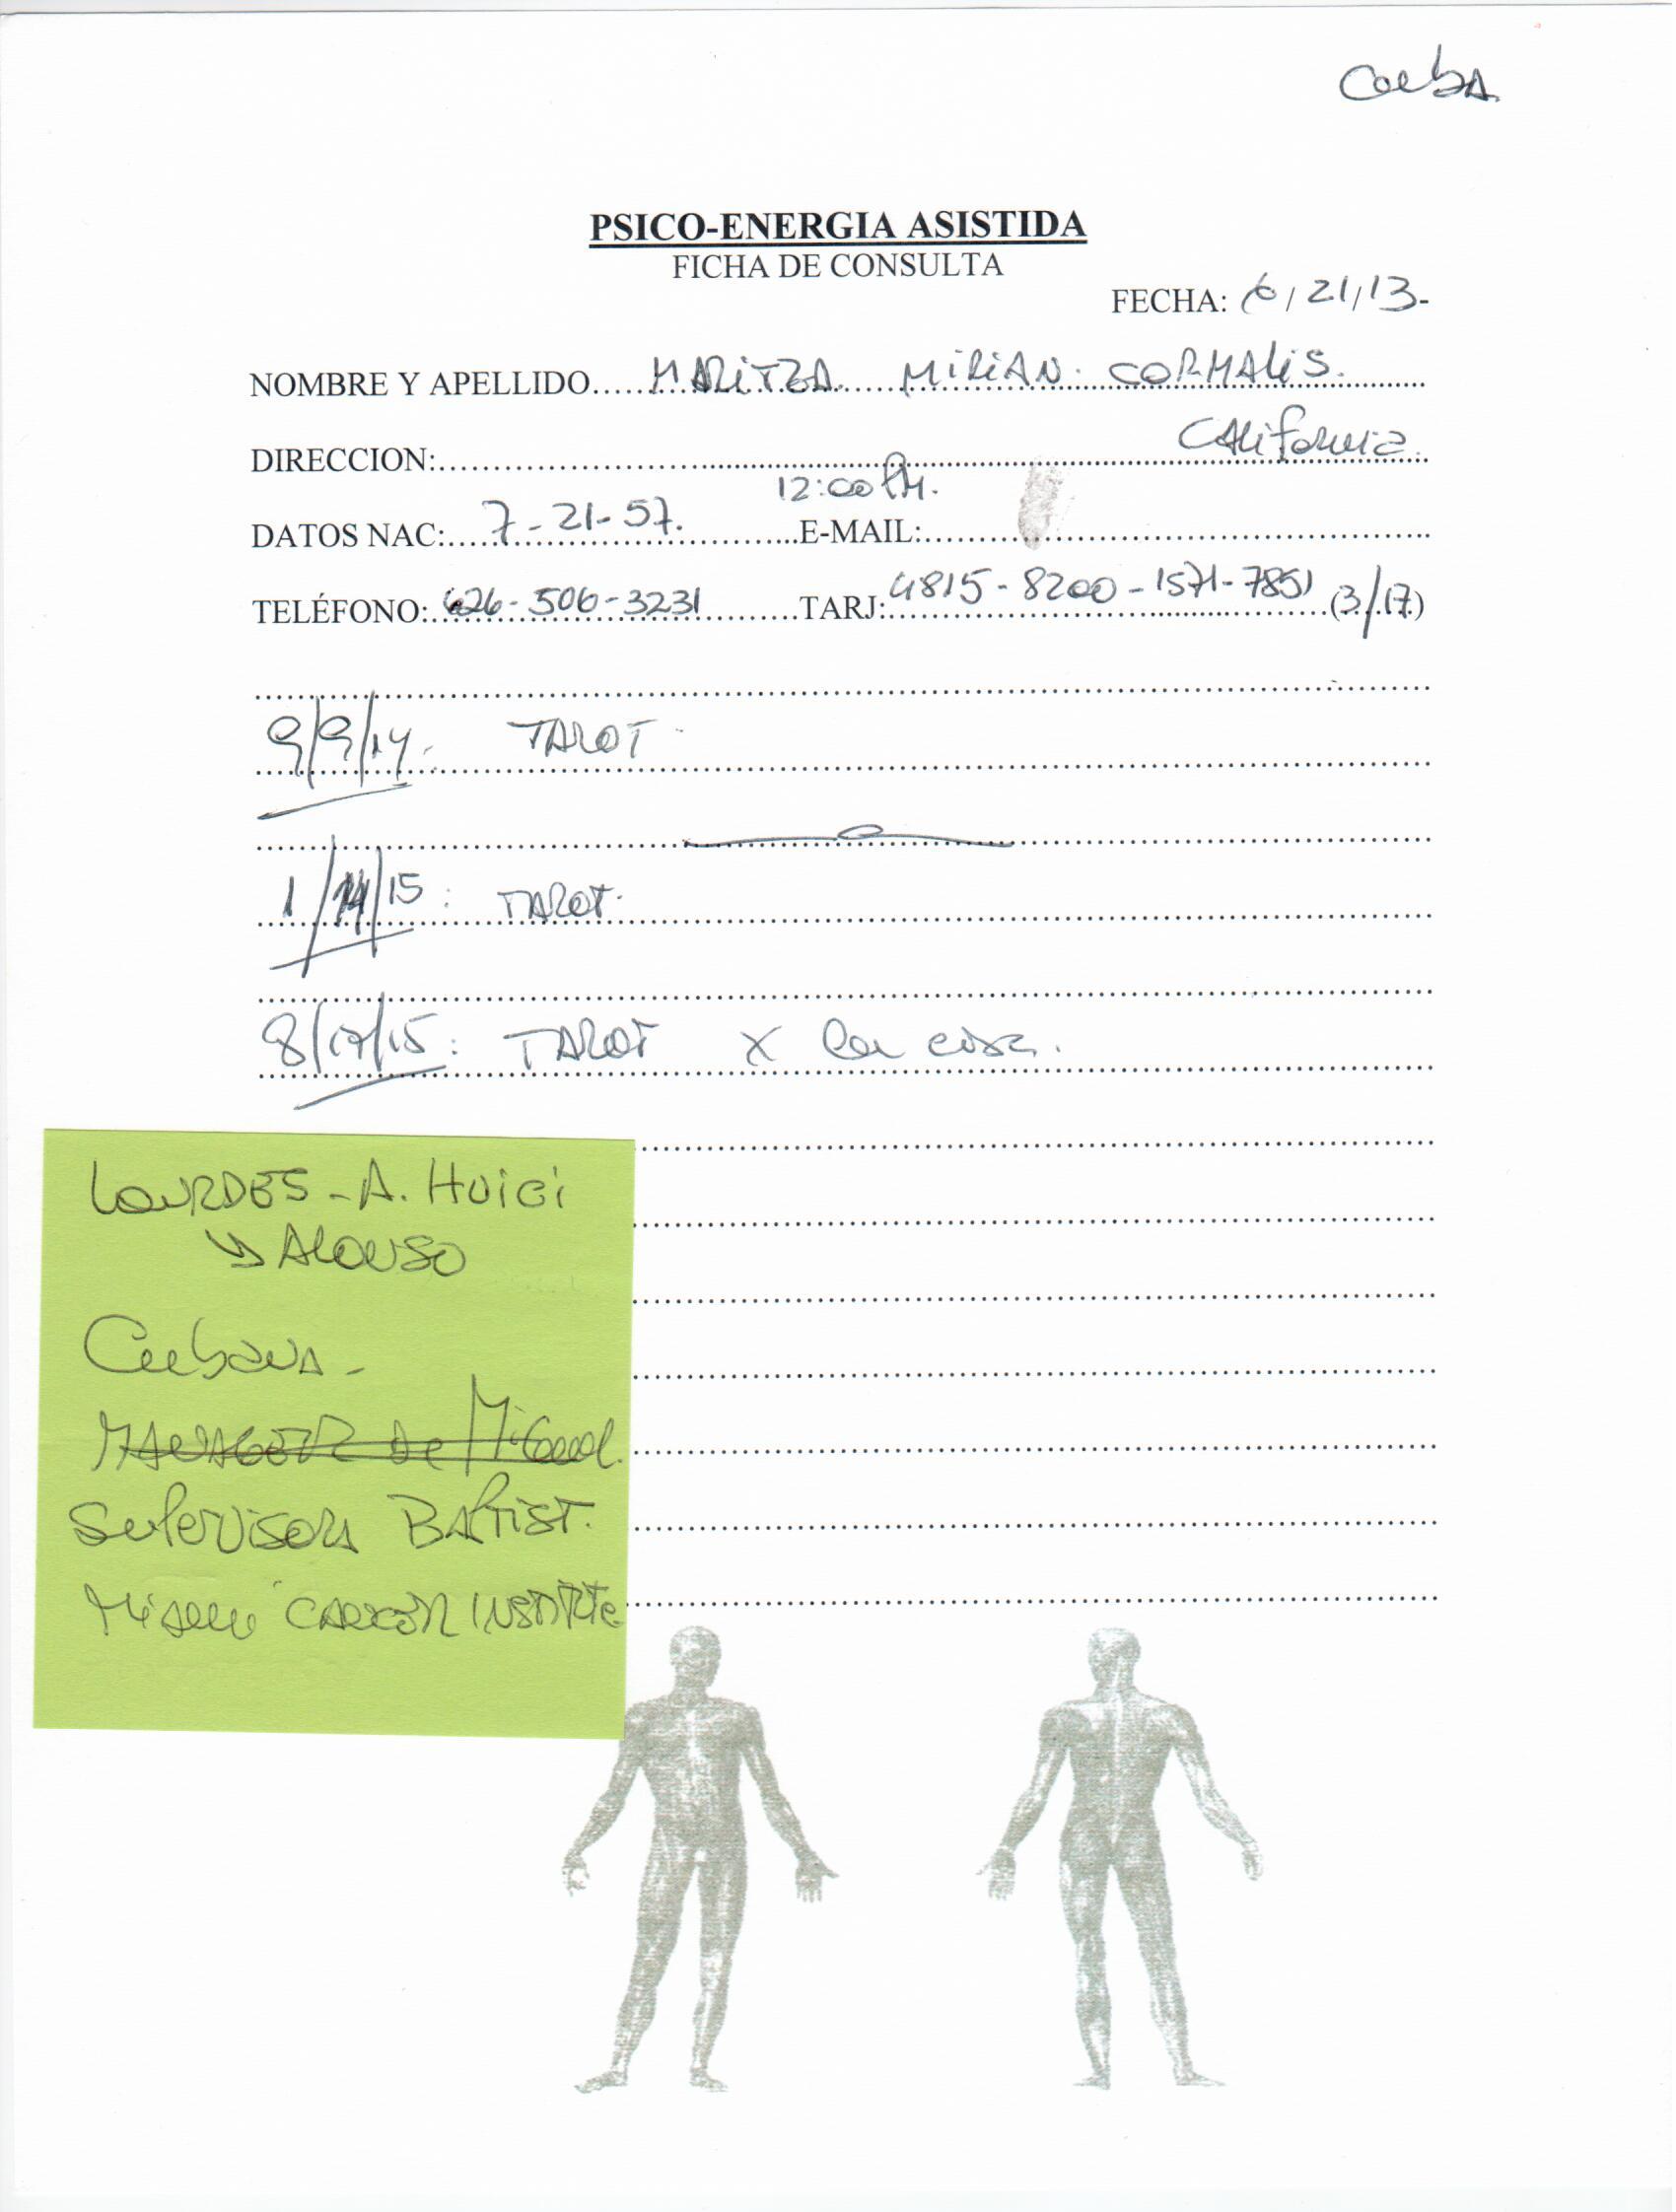 Cuba
PSICO-ENERGIA ASISTIDA
FICHA DE CONSULTA
FECHA: 6/21/13-
NOMBRE Y APELLIDO MARITZA MIRIAN CORMALIS.
DIRECCION: California
12:00 PM.
DATOS NAC: 7-21-57. E-MAIL:
TELÉFONO: 626-506-3231 TARJ: 4815-8200-1571-7851 (3/17)
9/9/14. TAROT
1/14/15: TAROT.
8/17/15: TAROT X la casa.
LOURDES - A. HUICI
ALONSO
Cubana -
MANAGER de Miguel.
Supervisora BAPTIST.
Miami CANCER INSTITUTE